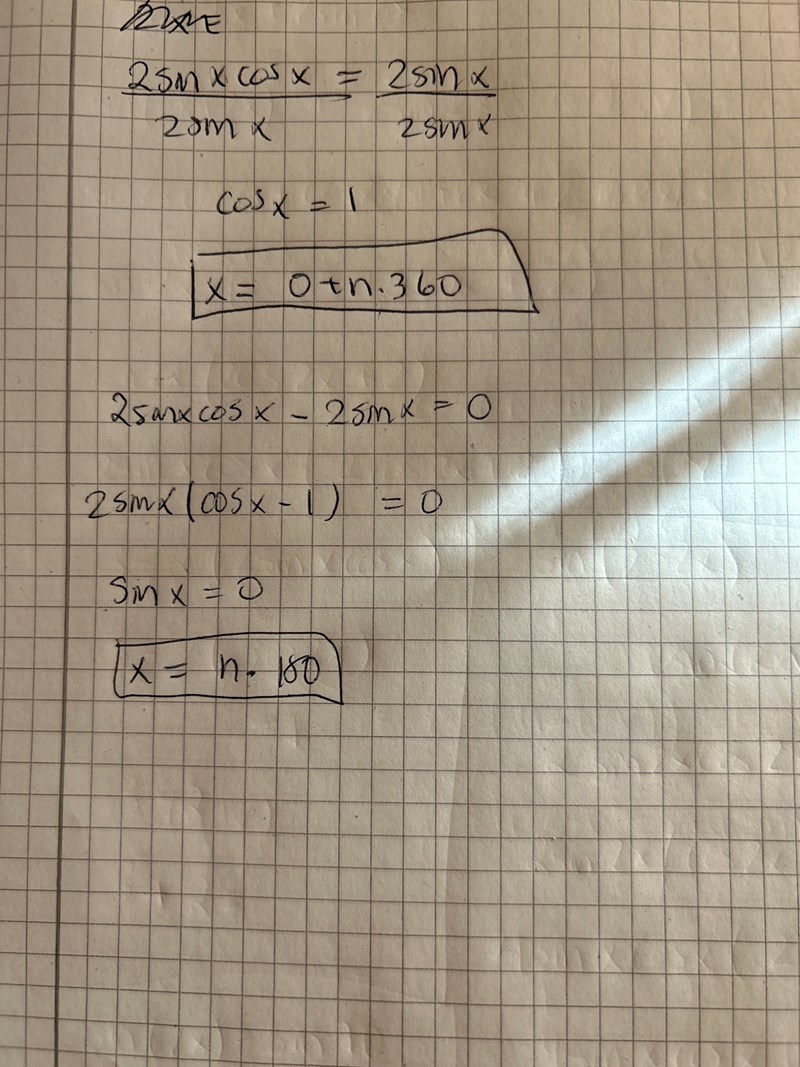 2sin x cos x = 2sin x
2sin x 2sin x
cos x = 1
x = 0+n.360
2sinxcosx - 2sinx = 0
2sinx(cosx-1) = 0
sin x = 0
x = n. 180